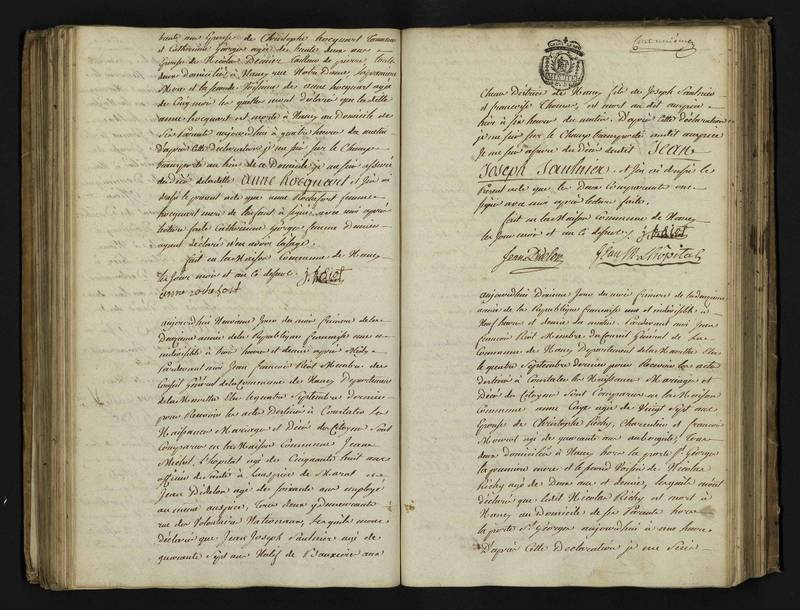 trente ans Epouse de Christophe hocquart
et Catherine Georges agée de trente deux ans
Epouse de Nicolas Demier tailleur de pierre toute
deux domiciliés à Nancy rue Notre Dame
Mere et la seconde Voisine de anne hocquart agée
de Cinq mois les quelles m'ont déclaré que ladite
anne hocquart est morte à Nancy au Domicile de
Ses Parents aujourd'hui à quatre heures du matin
D'après Cette Déclaration, je me suis sur le Champ
transporté au lieu de ce Domicile je me suis assuré
du Décès de ladite anne hocquart et j'en ai
dressé le present acte que anne Rochefort femme
hocquart mere de l'enfant a signé avec moi après
lecture faite Catherine Georges femme Demier
ayant déclaré n'en avoir l'usage.
fait en la Maison Commune de Nancy
Les Jour mois et an Cy dessus.
anne rochefort
aujourd'hui Neuvieme Jour du mois frimaire de la
Deuxieme année de la République francaise une et
indivisible à trois heures et demie après Midy
Pardevant moi Jean François Réot Membre du
Conseil Général de la Commune de Nancy Département
de la Meurthe Elu le quatre Septembre dernier
pour Recevoir les actes Destinés à Constater les
Naissances Mariages et Décès des Citoyens Sont
Comparus en la Maison Commune Jeann
Michel L'hopital agé de Cinquante huit ans
officier de santé à l'auspice de Marat et
Jean Didelon agé de Soixante ans employé
au meme auspice, tous deux y demeurants
rue des Volontaires Nationaux, lesquels m'ont
déclaré que Jean Joseph Saulnier agé de
quarante Sept ans Natif de
Centunième
de Nancy fils de Joseph Saulnier
et francoise est mort au dit auspice
hier à Six heures du matin. D'après Cette déclaration
je me suis sur le Champ transporté audit auspice
Je me suis assuré du Décès dudit Jean
Joseph Saulnier. et j'en ai dressé le
Présent acte que les Deux Comparants ont
signé avec moi après lecture faite.
fait en la Maison Commune de Nancy
les Jour mois et an Cy dessus.
Jean Didelon Jean M Lhôpital
aujourd'hui Dixieme Jour du mois frimaire de la deuxieme
année de la République francaise une et indivisible à
Neuf heures et demie du matin. Pardevant moi Jean
François Réot Membre du Conseil Général de La
Commune de Nancy Département de la Meurthe Elu
le quatre Septembre dernier pour Recevoir les actes
destinés à Constater les Naissances Mariages et
Décès des Citoyens Sont Comparus en la Maison
Commune anne Caye agée de Vingt Sept ans
Epouse de Christophe Richy, Charpentier et francois
Mourot agé de quarante ans aubergiste, tous
deux Domiciliés à Nancy hors la porte St. Georges
la premiere mere et le second Voisin de Nicolas
Richy agé de Deux ans et demie, lesquels m'ont
déclaré que ledit Nicolas Richy est mort à
Nancy au Domicile de ses Parents hors
la porte St. Georges aujourd'hui à une heure
D'après Cette Declaration je me Suis